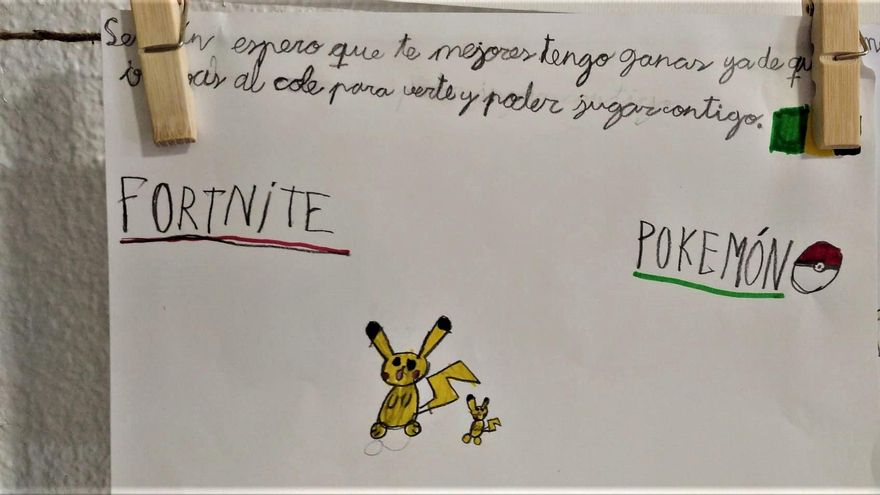 espero que te mejores tengo ganas ya de
al cole para verte y poder jugar contigo.
FORTNITE
POKEMÓN